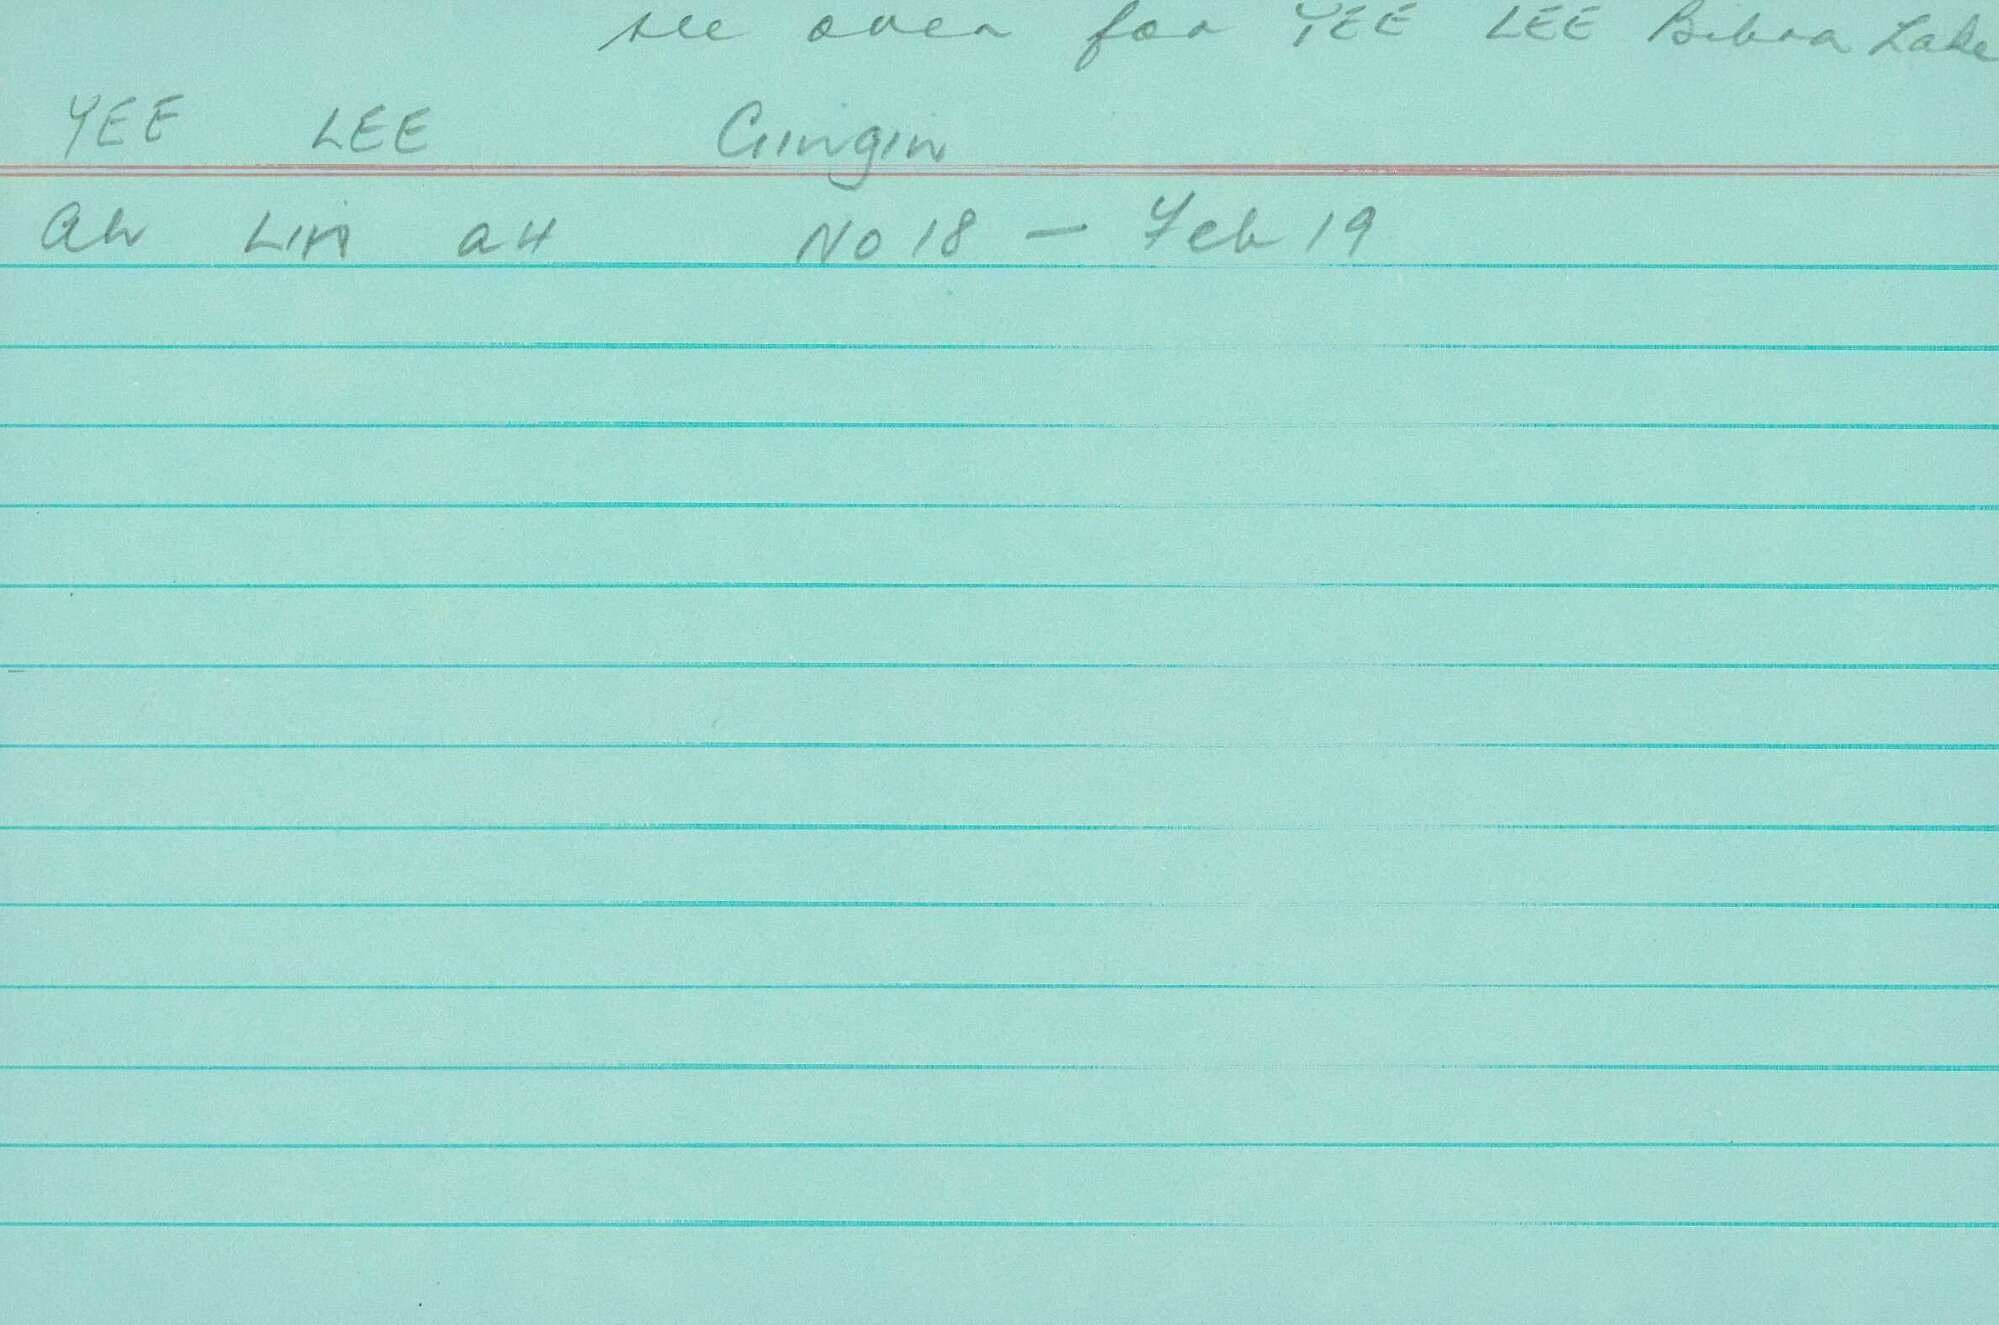 see over for YEE LEE Bibra Lake
YEE LEE Gingin
Ah Lim aH No 18 — Feb 19